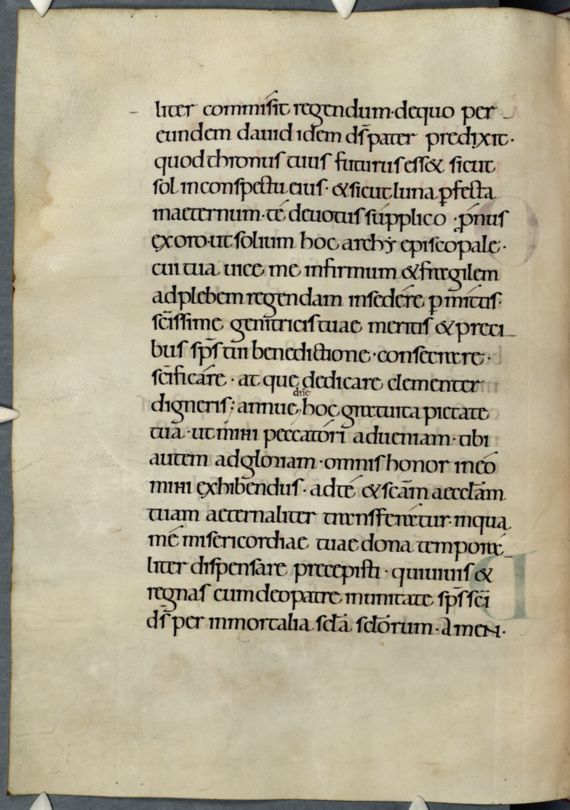 liter commisit regendum·dequo per
eundem dauid idem ds̄ pater predixit·
quod thronus tuus futurus ess& sicut
sol inconspectu eius·&sicut luna ꝑfecta
inaeternum·té deuotus supplico·ꝓnus
ęxoro·ut solium hoc archỹ episcopale·
cui tua uice me infirmum &fragilem
adplebem regendam insedére ꝑmittis:
sc̄issime genitricis tuae meritis &preci
bus sp̄s tui benedictione·consecrare·
sc̄ificáre·at que dedicare clementer
digneris; annue dn̄e hoc gratuita pietate
tua·ut mihi peccatóri adueniam·tibi
autem adgloriam·omnis honor inéo
mihi ęxhibendus·adté &scām aecclām
tuam aeternaliter transferétur·inqua
mé misericordiae tuae dona temporá
liter dispensare precepisti·quiuiuis &
regnas cumdeopatre inunitate sp̄s sc̄i
ds̄ per inmortalia sclā sclōrum·amen·